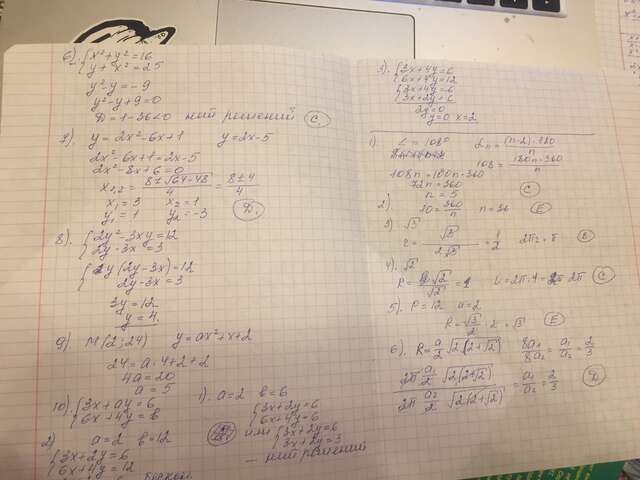 6) {x²+y²=16
{y+x²=25
y²-y=-9
y²-y+9=0
D=1-36<0 нет решений C.
7) y=2x²-6x+1 y=2x-5
2x²-6x+1=2x-5
2x²-8x+6=0
x₁,₂=8±√64-48/4=8±4/4
x₁=3 x₂=1
y₁=1 y₂=-3 D.
8). {2y²-3xy=12
{2y-3x=3
{y(2y-3x)=12
2y-3x=3
3y=12
y=4.
9) M(2;24) y=ax²+x+2
24=a·4+2+2
4a=20
a=5
10) {3x+ay=6
{6x+4y=b
1). a=2 b=6
{3x+2y=6
{6x+4y=6
или {3x+2y=6
{3x+2y=3
... нет решений
2) a=2 b=12
{3x+2y=6
{6x+4y=12
3) {3x+4y=6
{6x+4y=12
{3x+4y=6
{3x+2y=6
2y=0
y=0 x=2
1). L=108° Ln=(n-2)·180/n
108=180n-360/n
108n=180n-360
72n=360
n=5 C
2) 10=360/n n=36 E
3) √3
r=√3/2√3=1/2 2πr=π B
4). √2
L=2π·1=2π C
5). P=12 a=2
R=√3/2·2=√3 E
6). R=a/2√2(2+√2) 8a₁/8a₂=a₁/a₂=2/3
2π a₁/2 √2(2+√2)
2π a₂/2 √2(2+√2) =a₁/a₂=2/3 D